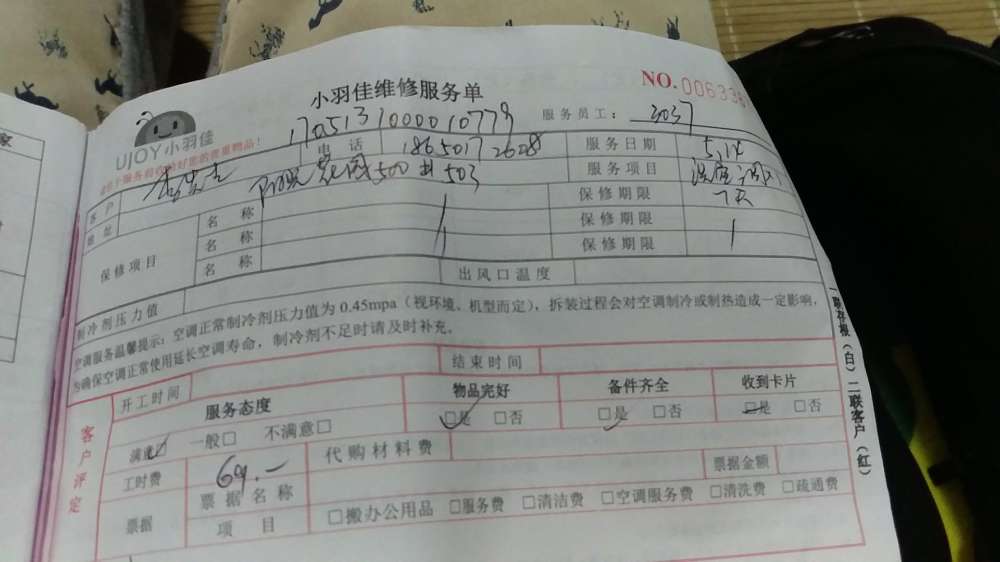 小羽佳维修服务单
NO.006336
UJOY小羽佳
1705131000010779
服务员工: 3037
电话 18650172628 服务日期 5.14
客户
地址 500#503 服务项目
保修项目 名称 保修期限 7天
名称 保修期限
名称 保修期限
制冷剂压力值 出风口温度
空调服务温馨提示:空调正常制冷剂压力值为0.45mpa(视环境、机型而定),拆装过程会对空调制冷或制热造成一定影响,
为确保空调正常使用延长空调寿命,制冷剂不足时请及时补充。
开工时间 结束时间
客户评定
服务态度 物品完好 备件齐全 收到卡片
满意□ 一般□ 不满意□ □是 □否 □是 □否 □是 □否
工时费 69.- 代购材料费
票据 票据名称 票据金额
项目 □搬办公用品 □服务费 □清洁费 □空调服务费 □清洗费 □疏通费
一联存根(白)二联客户(红)
家